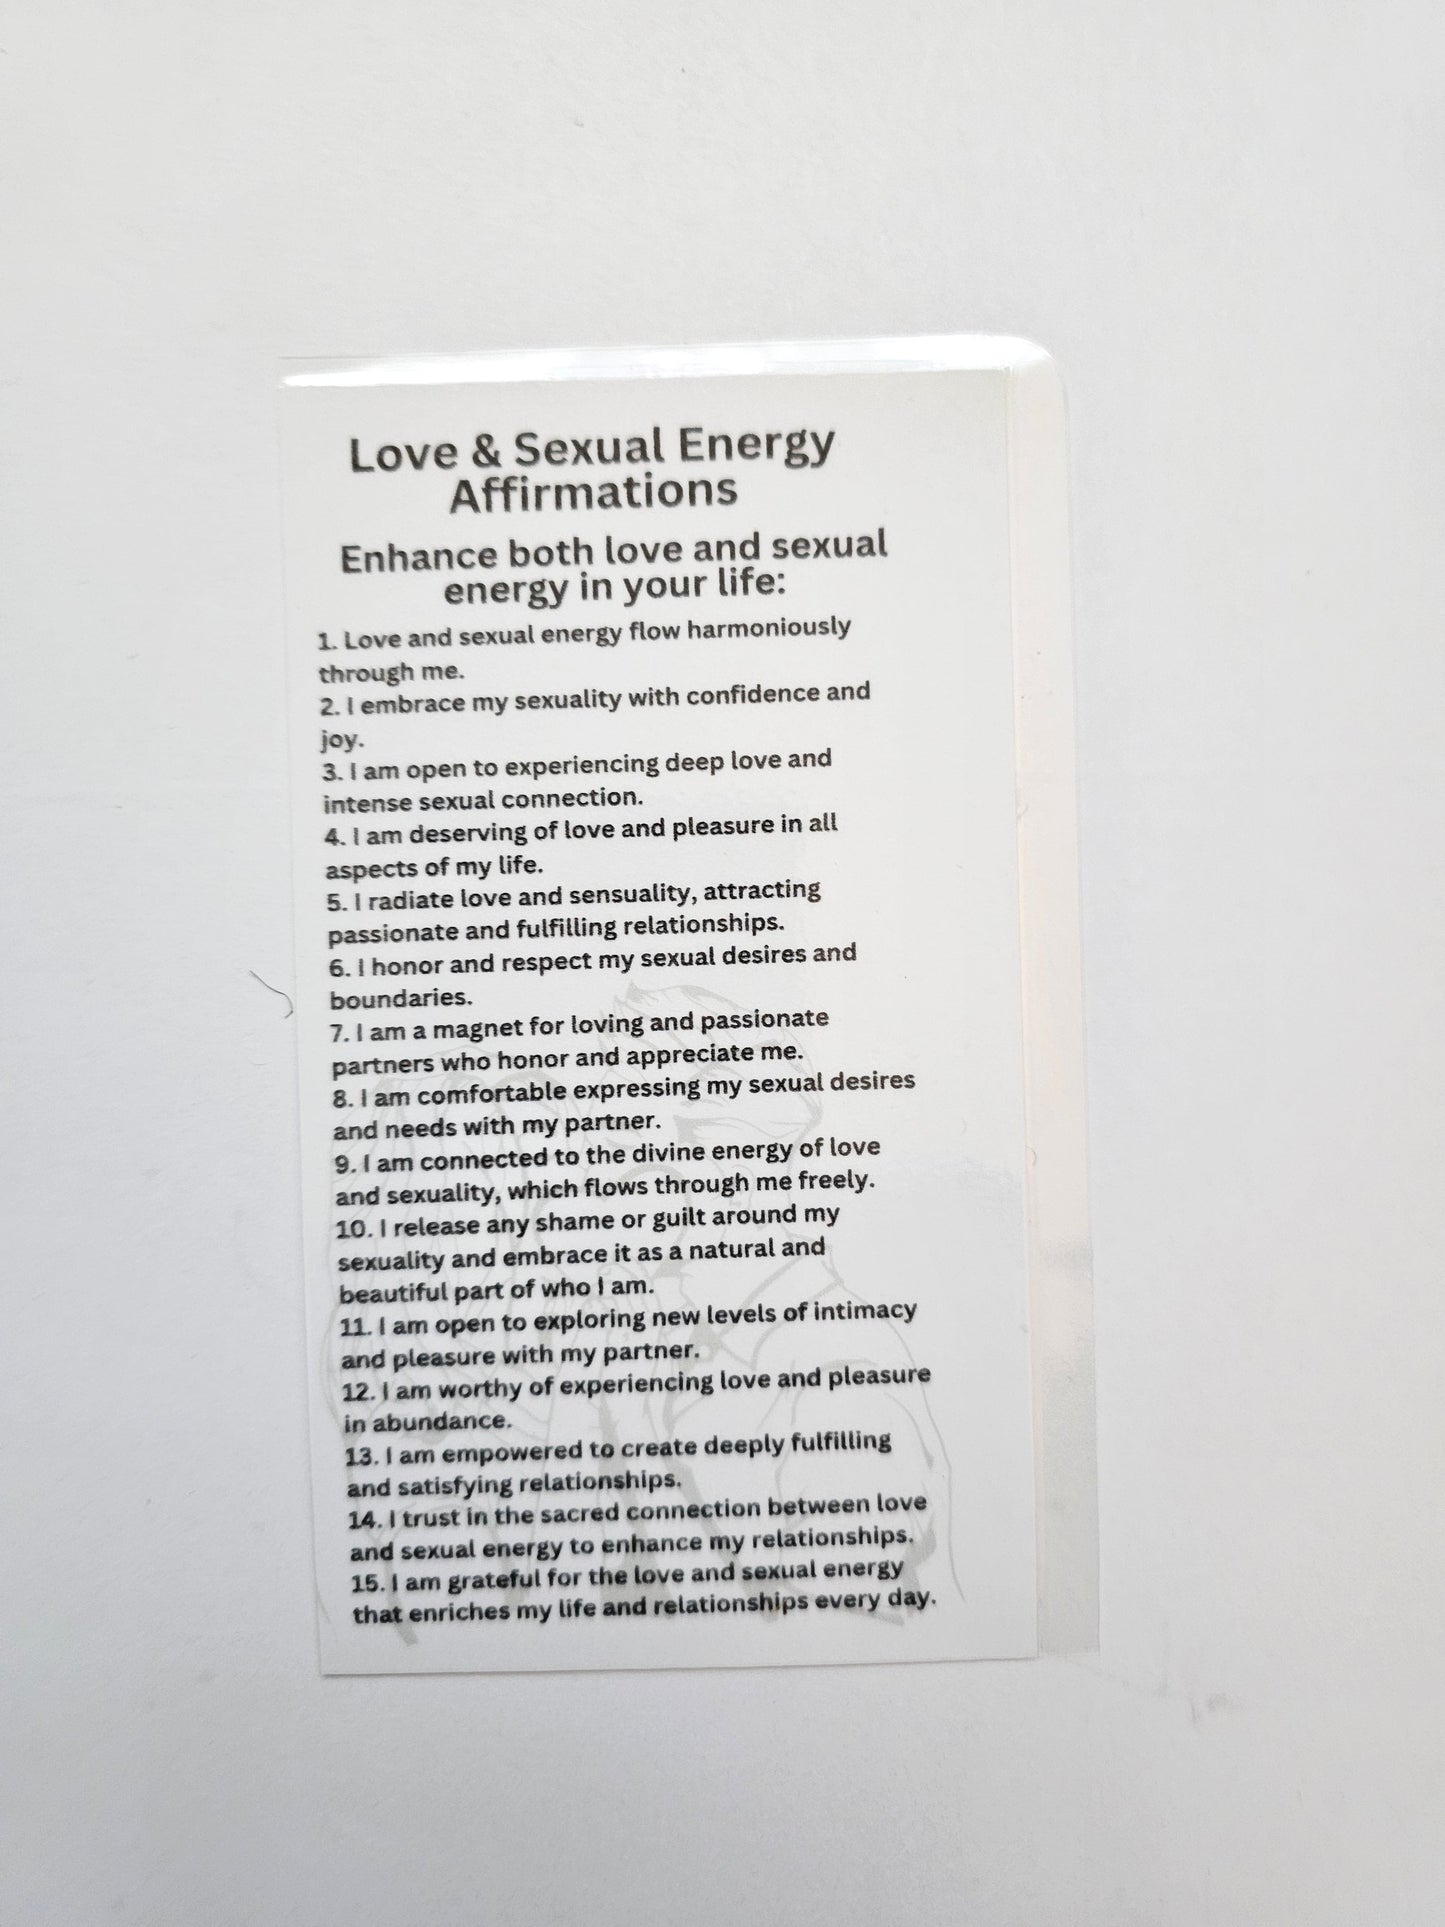 Love & Sexual Energy
Affirmations
Enhance both love and sexual
energy in your life:
1. Love and sexual energy flow harmoniously
through me.
2. I embrace my sexuality with confidence and
joy.
3. I am open to experiencing deep love and
intense sexual connection.
4. I am deserving of love and pleasure in all
aspects of my life.
5. I radiate love and sensuality, attracting
passionate and fulfilling relationships.
6. I honor and respect my sexual desires and
boundaries.
7. I am a magnet for loving and passionate
partners who honor and appreciate me.
8. I am comfortable expressing my sexual desires
and needs with my partner.
9. I am connected to the divine energy of love
and sexuality, which flows through me freely.
10. I release any shame or guilt around my
sexuality and embrace it as a natural and
beautiful part of who I am.
11. I am open to exploring new levels of intimacy
and pleasure with my partner.
12. I am worthy of experiencing love and pleasure
in abundance.
13. I am empowered to create deeply fulfilling
and satisfying relationships.
14. I trust in the sacred connection between love
and sexual energy to enhance my relationships.
15. I am grateful for the love and sexual energy
that enriches my life and relationships every day.